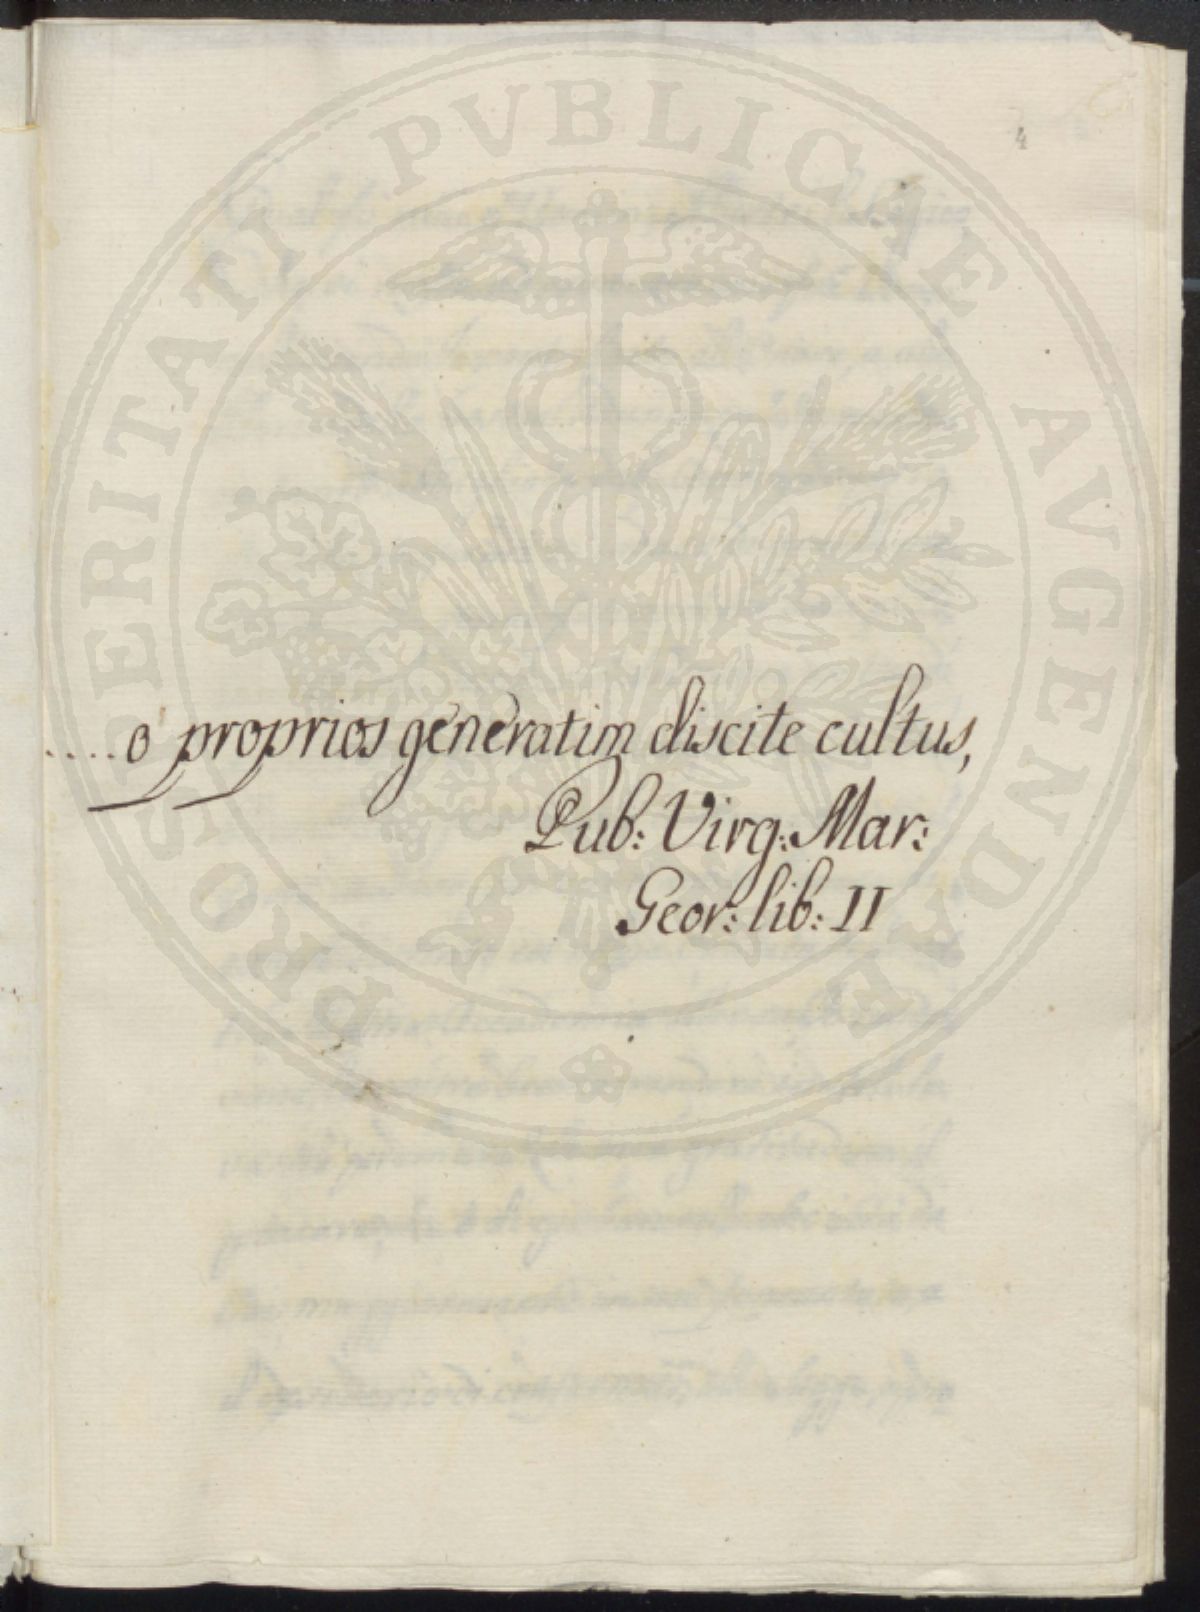 4
....o proprios generatim discite cultus,
Pub: Virg: Mar:
Geor: lib: II
PROSPERITATI PVBLICAE AVGENDAE